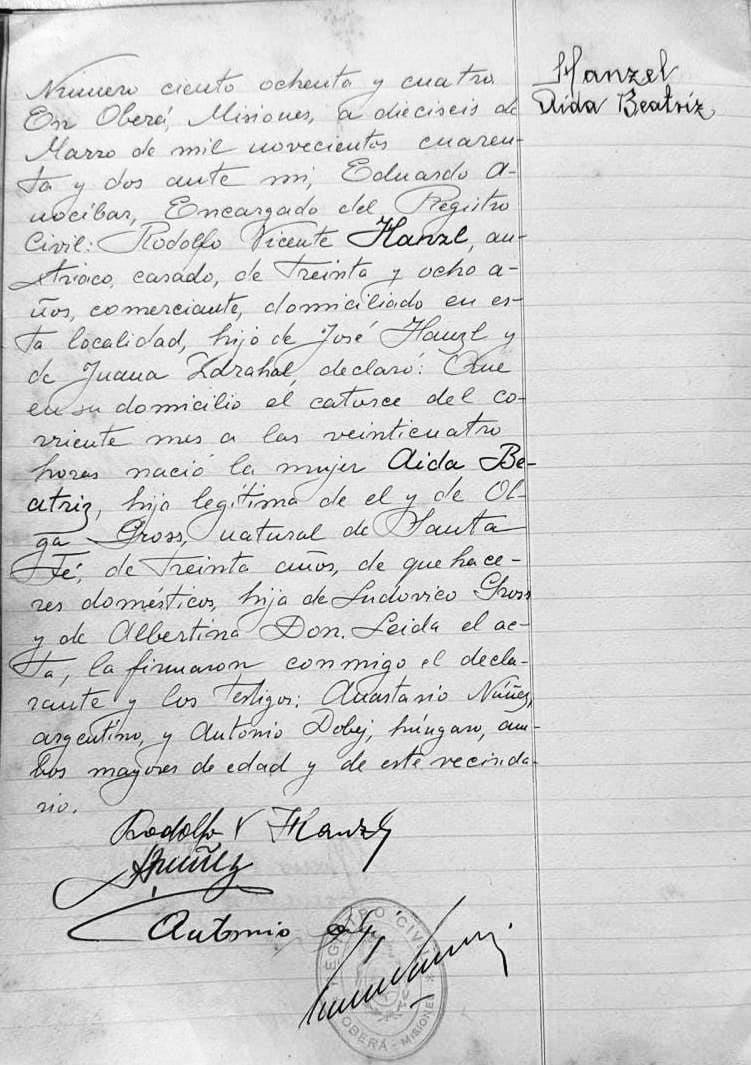 Hanzel
Aida Beatríz
Número ciento ochenta y cuatro
En Oberá, Misiones, a dieciseis de
Marzo de mil novecientos cuaren-
ta y dos ante mi, Eduardo A-
nocíbar, Encargado del Registro
Civil: Rodolfo Vicente Hanzl, aus-
tríaco, casado, de treinta y ocho a-
ños, comerciante, domiciliado en es-
ta localidad, hijo de José Hanzl y
de Juana Zdrahal, declaró: Que
en su domicilio el catorce del co-
rriente mes a las veinticuatro
horas nació la mujer Aida Be-
atriz, hija legítima de el y de Ol-
ga Gross, natural de Santa
Fé, de treinta años, de que hace-
res domésticos, hija de Ludovico Gross
y de Albertina Don. Leida el ac-
ta, la firmaron conmigo el decla-
rante y los testigos: Anastasio Núñez,
argentino, y Antonio Dobej, húngaro, am-
bos mayores de edad y de este vecinda-
rio.
Rodolfo V Hanzl
A Nuñez
Antonio
REGISTRO CIVIL
OBERÁ - MISIONES